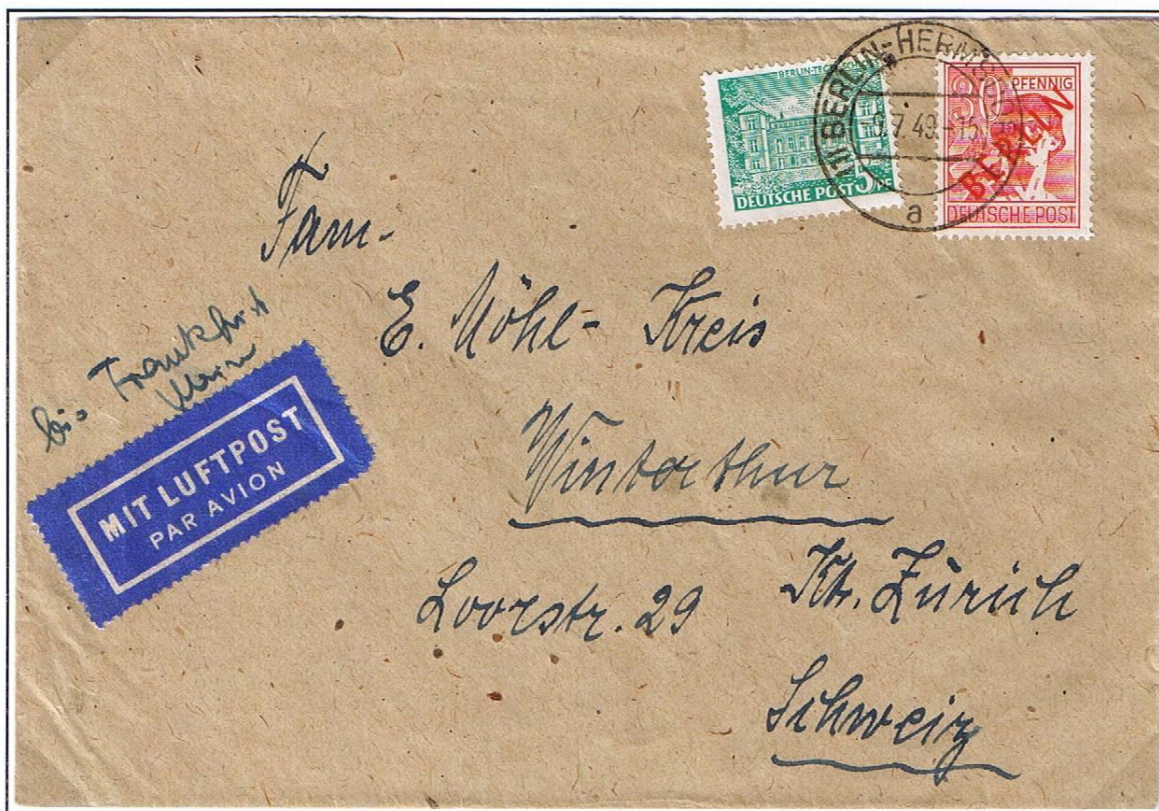 BERLIN-HERMS
-9.7.49.-15
a
DEUTSCHE POST 5 PF
30 PFENNIG
BERLIN
DEUTSCHE POST
Fam.
E. Möhl-Kreis
Winterthur
Loorstr. 29
Kt. Zürich
Schweiz
bis Frankfurt
Main
MIT LUFTPOST
PAR AVION